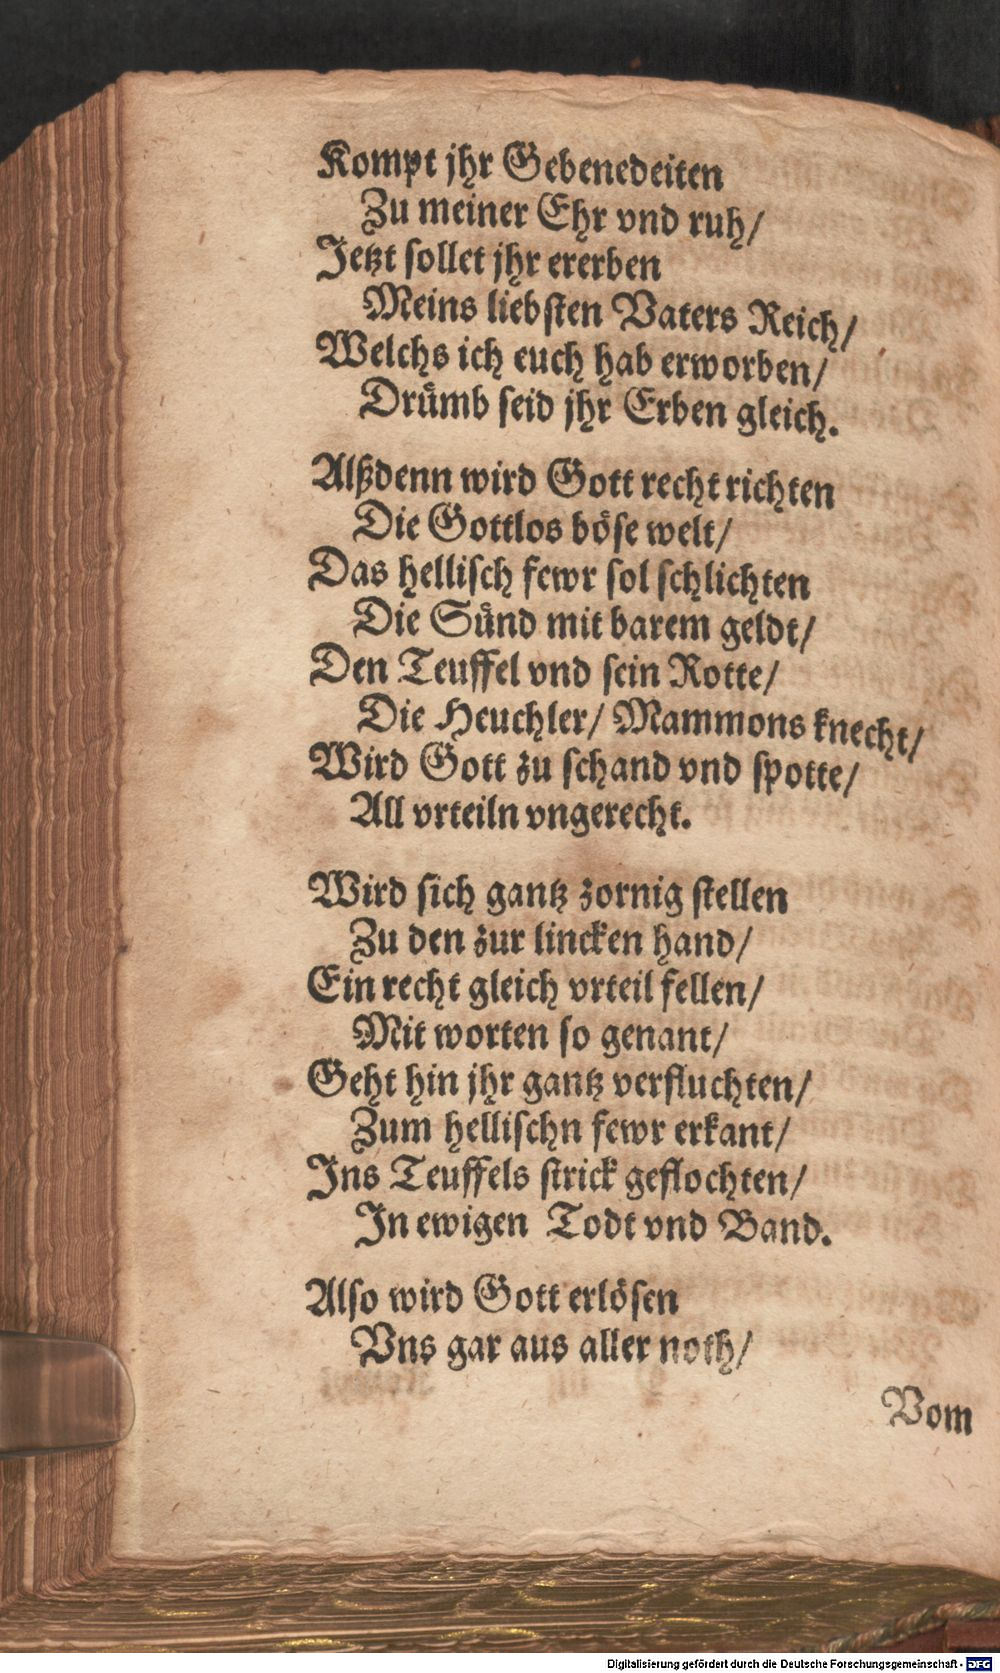 Kompt jhr Gebenedeiten
Zu meiner Ehr vnd ruh/
Jetzt sollet jhr ererben
Meins liebsten Vaters Reich/
Welchs ich euch hab erworben/
Drůmb seid jhr Erben gleich.
Alßdenn wird Gott recht richten
Die Gottlos böse welt/
Das hellisch fewr sol schlichten
Die Sünd mit barem geldt/
Den Teuffel vnd sein Rotte/
Die Heuchler/ Mammons knecht/
Wird Gott zu schand vnd spotte/
All vrteiln vngerecht.
Wird sich gantz zornig stellen
Zu den zur lincken hand/
Ein recht gleich vrteil fellen/
Mit worten so genant/
Geht hin jhr gantz verfluchten/
Zum hellischn fewr erkant/
Jns Teuffels strick geflochten/
Jn ewigen Todt vnd Band.
Also wird Gott erlösen
Vns gar aus aller noth/
Vom
Digitalisierung gefördert durch die Deutsche Forschungsgemeinschaft - DFG